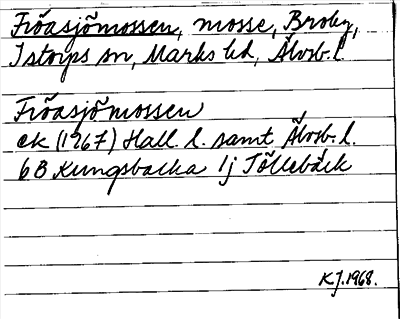 Fröasjömossen, mosse, Broby,
Istorps sn, Marks hd, Älvsb. l.
Fröasjömossen
ek (1967) Hall. l. samt Älvsb. l.
6B Kungsbacka 1j Töllebäck
KJ. 1968.